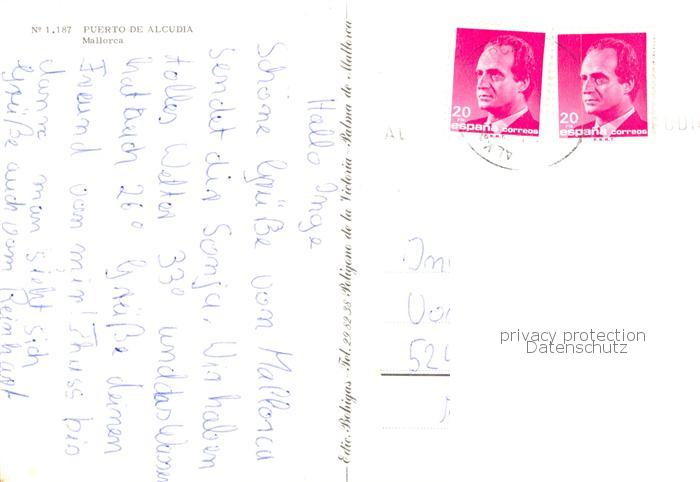 Nº 1.187 PUERTO DE ALCUDIA
Mallorca
Hallo Inga
Schöne Grüße von Mallorca
Sendet dir Sonja. Wir haben
tolles Wetter 33° und das Wasser
hat auch 26° Grüße deinen
Freund von mir! Tschüss bis
dann man sieht sich
Grüße auch vom Reinhart
Edic. Bohigas - Tel. 22 82 38 Polígono de la Victoria - Palma de Mallorca
20
España correos
20
España correos
AL
In
Von
52
privacy protection
Datenschutz